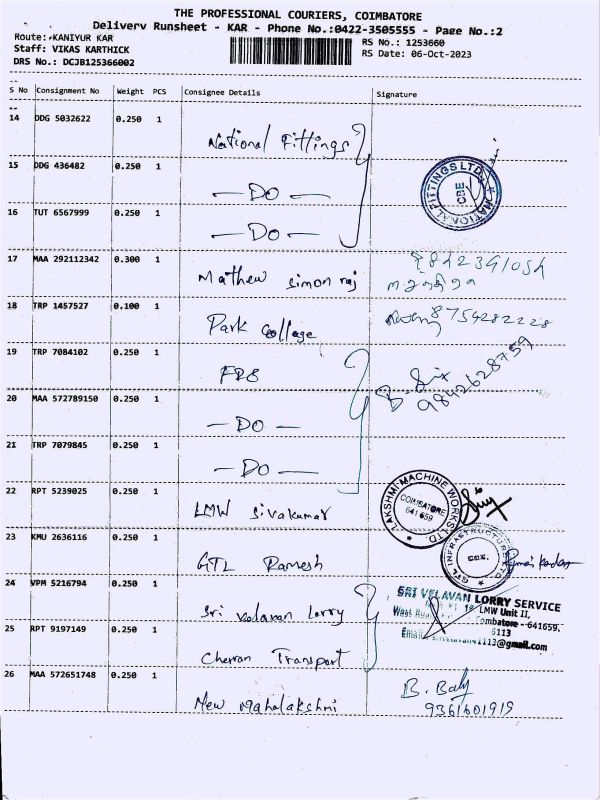 THE PROFESSIONAL COURIERS, COIMBATORE
Delivery Runsheet - KAR - Phone No.:0422-3505555 - Page No.:2
Route: KANIYUR KAR
RS No.: 1253660
Staff: VIKAS KARTHICK
RS Date: 06-Oct-2023
DRS No.: DCJB125366002
S No Consignment No Weight PCS Consignee Details Signature
14 DDG 5032622 0.250 1 National Fittings
15 DDG 436482 0.250 1 — Do —
NATIONAL FITTINGS LTD. CBE
16 TUT 6567999 0.250 1 — Do —
17 MAA 292112342 0.300 1 Mathew Simon raj
18 TRP 1457527 0.100 1 Park College 8754282228
19 TRP 7084102 0.250 1
9842628759
20 MAA 572789150 0.250 1 — Do —
21 TRP 7079845 0.250 1 — Do —
22 RPT 5239025 0.250 1 LMW Sivakumar
LAKSHMI MACHINE WORKS LTD. COIMBATORE 641 659
23 KMU 2636116 0.250 1 GTL Ramesh
GTL INFRASTRUCTURE LTD CBE.
24 VPM 5216794 0.250 1 Sri Velavan Lorry
SRI VELAVAN LORRY SERVICE
LMW Unit II,
Coimbatore - 641659,
25 RPT 9197149 0.250 1 Cheran Transport
26 MAA 572651748 0.250 1 New Mahalakshmi
9361601919